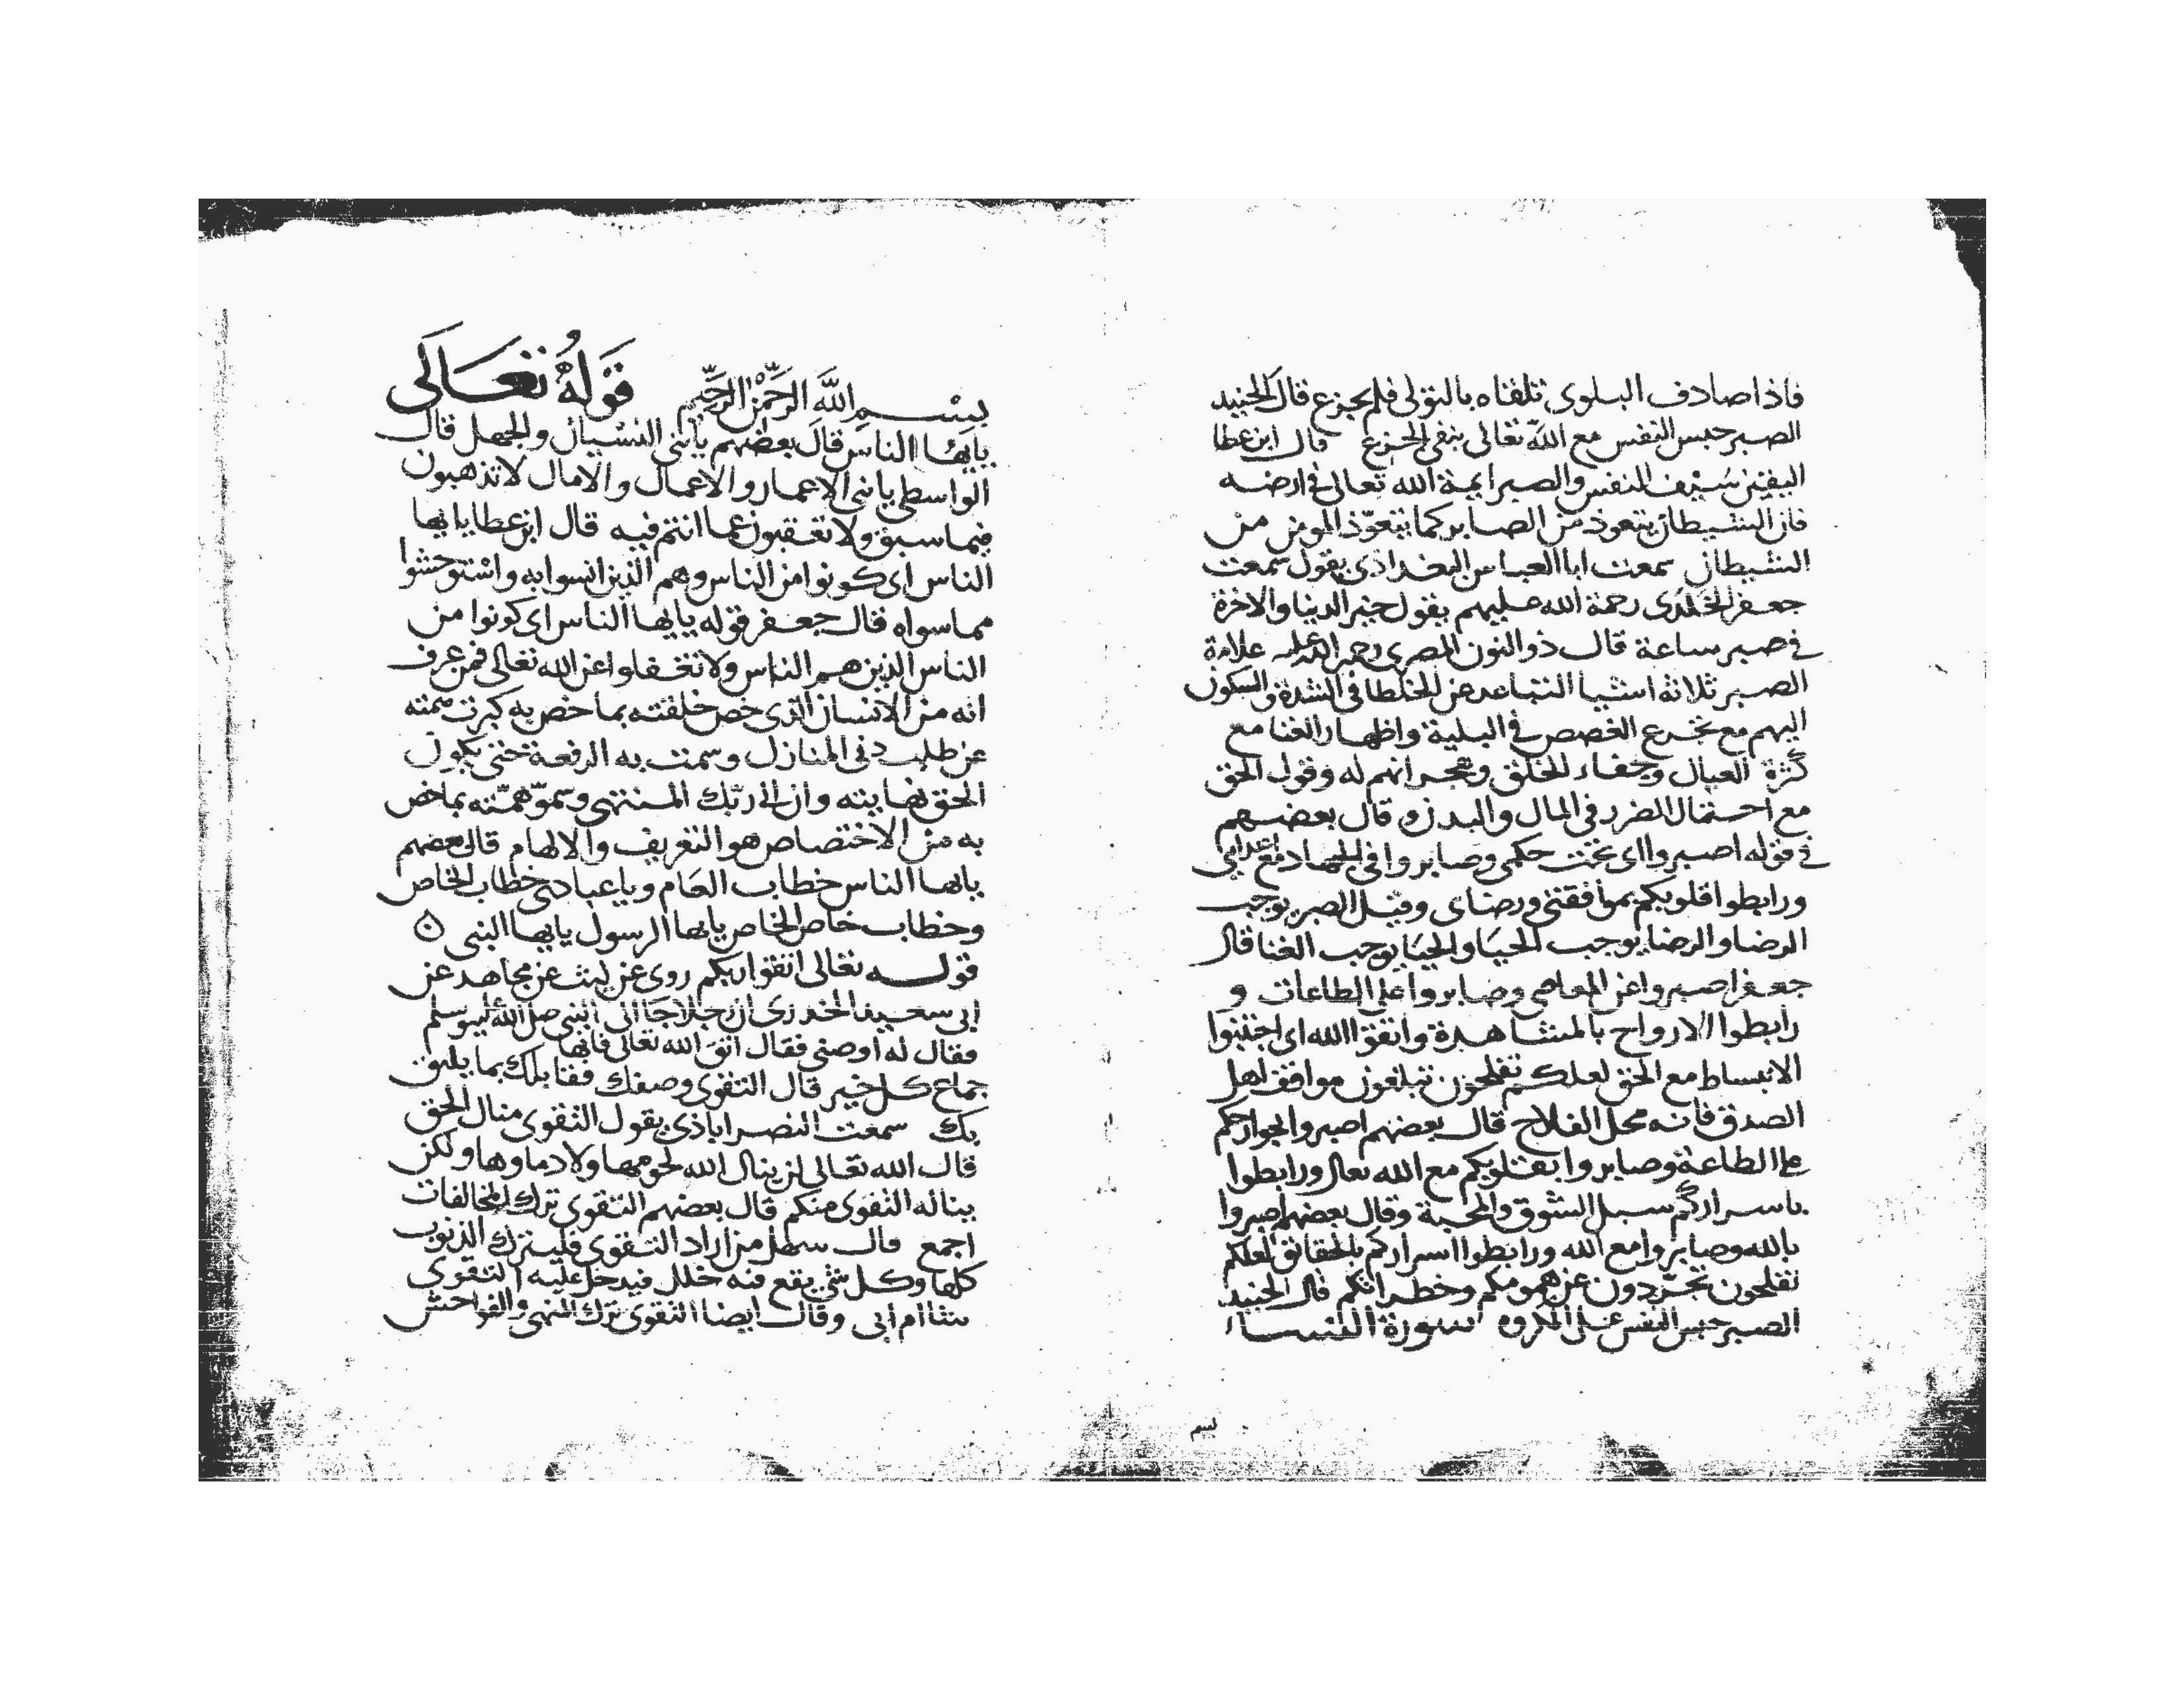 فاذا صادف البلوى تلقاه بالتولى فلم يجزع قال الجنيد
الصبر حبس النفس مع الله تعالى بنفى الجزع قال ابن عطا
اليقين سيف النفس والصبر ايمة الله تعالى فى ارضه
فان الشيطان يتعوذ من الصابر كما يتعوّذ المومن من
الشيطان سمعت ابا العباس البغداذى يقول سمعت
جعفر الخلدى رحمة الله عليهم يقول خير الدنيا والاخرة
فى صبر ساعة قال ذو النون المصرى رحمه الله عليه علامة
الصبر ثلاثة اشيا التباعد عن الخلطا فى الشدة والسكون
اليهم مع تجرع الغصص فى البلية واظهار الغنا مع
كثرة العيال وجفاء الخلق وهجرانهم له وقول الحق
مع احتمال الضرر فى المال والبدن قال بعضهم
فى قوله اصبروا اى تحت حكمى وصابروا فى الجهاد مع اعدايى
ورابطوا قلوبكم بموافقتى ورضاى وقيل الصبر يوجب
الرضا والرضا يوجب الحيا والحيا يوجب الغنا قال
جعفر اصبروا عن المعاصى وصابروا على الطاعات و
رابطوا الارواح بالمشاهدة واتقوا الله اى اجتنبوا
الانبساط مع الحق لعلكم تفلحون تبلغون مواقف اهل
الصدق فانه محل الفلاح قال بعضهم اصبروا بجوارحكم
على الطاعة وصابروا بقلوبكم مع الله تعالى ورابطوا
باسراركم سبل الشوق والمحبة وقال بعضهم اصبروا
بالله وصابروا مع الله ورابطوا اسراركم بالحقائق لعلكم
تفلحون تجرّدون عن همومكم وخطراتكم قال الجنيد
الصبر حبس النفس على المكروه سورة النساء
بسم
بسم الله الرحمن الرحيم قوله تعالى
يايها الناس قال بعضهم يا بنى النسيان والجهل قال
الواسطى يا بنى الاعمار والاعمال والامال لا تذهبون
فيما سبق ولا تعقبون عما انتم فيه قال ابن عطا يا ايها
الناس اى كونوا من الناس وهم الذين انسوا به واستوحشوا
مما سواه قال جعفر قوله يايها الناس اى كونوا من
الناس الذين هم الناس ولا تغفلوا عن الله تعالى فمن عرف
انه من الانسان الذى خص خلقته بما خص به كبرت همته
عن طلب دنى المنازل وسمت به الرفعة حتى يكون
الحق نهايته وان الى ربّك المنتهى وسموّ همّته بما خص
به من الاختصاص هو التعريف والالهام قال بعضهم
يايها الناس خطاب العام ويا عبادى خطاب الخاص
وخطاب خاص الخاص يايها الرسول يايها النبى
قوله تعالى اتقوا ربكم روى عن ليث عن مجاهد عن
ابى سعيد الخدرى ان رجلا جا الى النبى صلى الله عليه وسلم
فقال له اوصنى فقال اتق الله تعالى فانها
جماع كل خير قال التقوى وصفك فقابلك بما يليق
بك سمعت النصراباذى يقول التقوى منال الحق
قال الله تعالى لن ينال الله لحومها ولا دماوها ولكن
يناله التقوى منكم قال بعضهم التقوى ترك المخالفات
اجمع قال سهل من اراد التقوى فليترك الذنوب
كلها وكل شى يقع فيه خلل فيدخل عليه التقوى
شاام ابى وقال ايضا التقوى ترك المنهى والفواحش